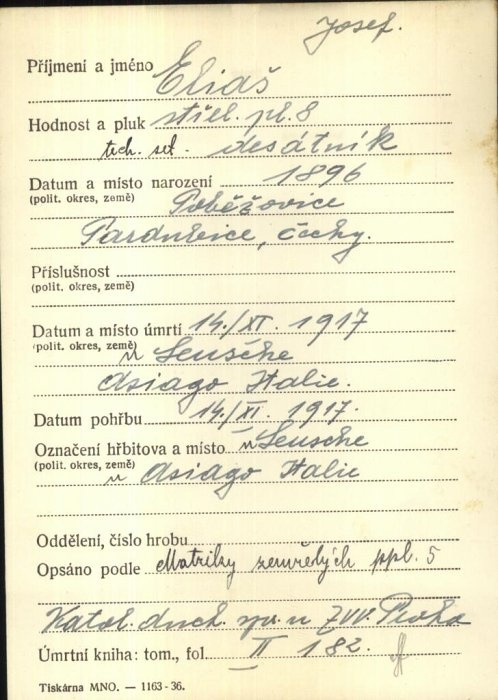 Josef.
Příjmení a jméno Eliaš
Hodnost a pluk střel. pl. 8
tech. set. desátník
Datum a místo narození 1896
(polit. okres, země) Poběžovice
Pardubice, Čechy.
Příslušnost
(polit. okres, země)
Datum a místo úmrtí 14./XI. 1917
(polit. okres, země) u Leusche
Asiago Italie.
Datum pohřbu 14./XI. 1917.
Označení hřbitova a místo u Leusche
(polit. okres, země) u Asiago Italie
Oddělení, číslo hrobu
Opsáno podle Matriky zemřelých ppl. 5
Katol. duch. spr. u ZVV. Praha
Úmrtní kniha: tom., fol. II 182.
Tiskárna MNO. — 1163-36.